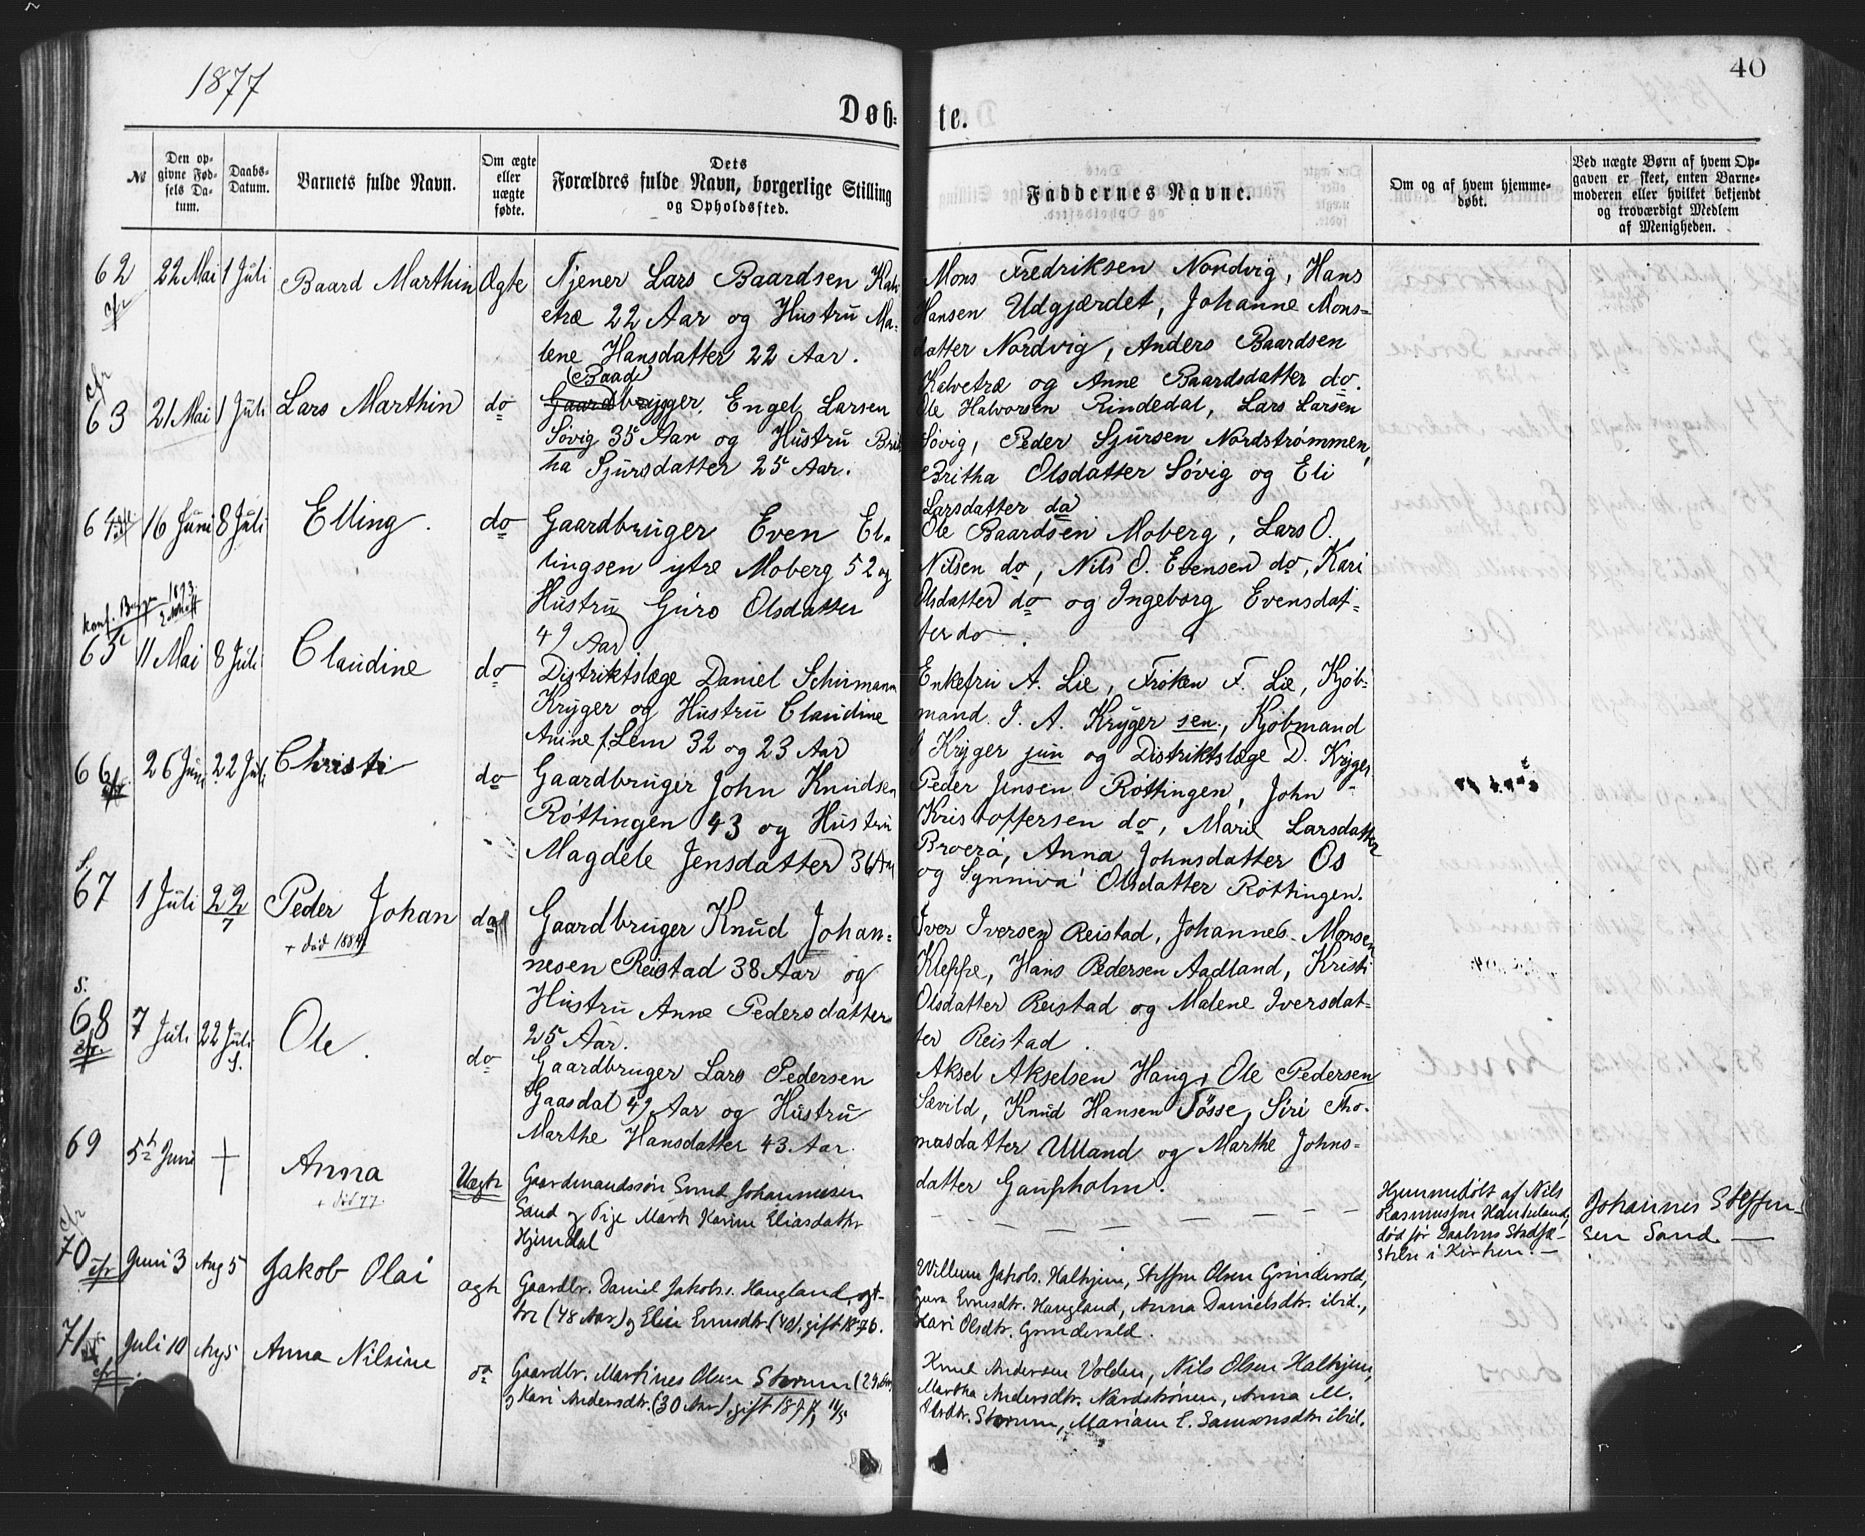 1877
40
Døb-
te.
№
Den op-
givne Fød-
sels Da-
tum.
Daabs-
Datum.
Barnets fulde Navn.
Om ægte
eller
uægte
fødte.
Dets
Forældres fulde Navn, borgerlige Stilling
og Opholdssted.
Faddernes Navne.
Om og af hvem hjemme-
døbt.
Ved uægte Børn af hvem Op-
gaven er skeet, enten Barne-
moderen eller hvilket bekjendt
og troværdigt Medlem
af Menigheden.
62
22 Mai
1 Juli
Baard Marthin
Ægte
Tjener Lars Baardsen Kalv
etræ 22 Aar og Hustru Ma-
lene Hansdatter 22 Aar.
Mons Fredriksen Nordvig, Hans
Hansen Udgjærdet, Johanne Mons-
datter Nordvig, Anders Baardsen
Kalvetræ og Anne Baardsdatter do.
cfr
63
21 Mai
1 Juli
Lars Marthin
do
(Baad)
Gaardbrygger, Engel Larsen
Søvig 35 Aar og Hustru Brit
ha Sjursdatter 25 Aar.
Ole Halvorsen Rindedal, Lars Larsen
Søvig, Peder Sjursen Nordstrømmen,
Britha Olsdatter Søvig og Eli
Larsdatter do
64
16 Juni
8 Juli
Elling.
do
Gaardbruger Even El-
lingsen ytre Moberg 52 og
Hustru Guro Olsdatter
49 Aar
Ole Baardsen Moberg, Lars O.
Nilsen do, Nils O. Evensen do, Kari
Olsdatter do og Ingeborg Evensdat-
ter do.
konf. 1893
65
11 Mai
8 Juli
Claudine
do
Distriktslæge Daniel Schumann
Kryger og Hustru Claudine
Anine f. Lem 32 og 23 Aar
Enkefru A. Lie, Frøken F. Lie, Kjøb-
mand. J. A. Kryger sen., Kjøbmand
J Kryger jun og Distriktslæge D. Kryger
66
26 Juni
22 Juli
Christi
do
Gaardbruger John Knudsen
Røttingen 43 og Hustru
Magdele Jensdatter 36 Aar
Peder Jensen Røttingen, John
Kristoffersen do, Marie Larsdatter
Broerø, Anna Johnsdatter Os
og Synniva Olsdatter Røttingen.
S.
67
1 Juli
22/7
Peder Johan
+ død 1884
do
Gaardbruger Knud Johan-
nesen Reistad 38 Aar og
Hustru Anne Pedersdatter
25 Aar.
Iver Iversen Reistad, Johannes Monsen
Kleppe, Hans Pedersen Aadland, Kristi
Olsdatter Reistad og Malene Iversdat-
ter Reistad.
S.
68
cfr.
7 Juli
22 Juli
S.
Ole.
do
Gaardbruger Lars Pedersen
Gaasdal 49 Aar og Hustru
Marthe Hansdatter 43 Aar.
Aksel Akselsen Haug, Ole Pedersen
Sævild, Knud Hansen Tøsse, Siri Tho-
masdatter Ulland og Marthe Johns-
datter Gaupholm.
69
5te Juni
+
Anna
+ død 77.
Uægte
Gaardmandssøn Svend Johannesen
Sand og Pige Marth Karine Eliasdatter
Hjemdal
Hjemmedøbt af Nils
Rasmussen Haukeland,
død før Daabens Stadfæ-
stelse i Kirken. —
Johannes Steffen-
sen Sand —
cfr
70
cfr
Juni 3
Aug 5
Jakob Olai
ægte
Gaardbr. Daniel Jakobs. Haugland, ægt-
tre (48 Aar) og Eline Evensdtr. (40), gift 1876.
Willum Jakobs. Halhjem, Steffen Olsen Grindevold,
Guro Evensdtr. Haugland, Anna Danielsdtr. ibid.,
Kari Olsdtr. Grindevold.
71
cfr
Juli 10
Aug 5
Anna Nilsine
do
Gaardbr. Martines Olsen Storum (29 Aar)
og Kari Andersdtr. (30 Aar), gift 1877,
Knud Andersen Volden, Nils Olsen Halhjem,
Martha Andersdtr. Nordstrønen, Anna M.
Olsdtr. Storum, Mariam E. Samsonsdtr. ibid.